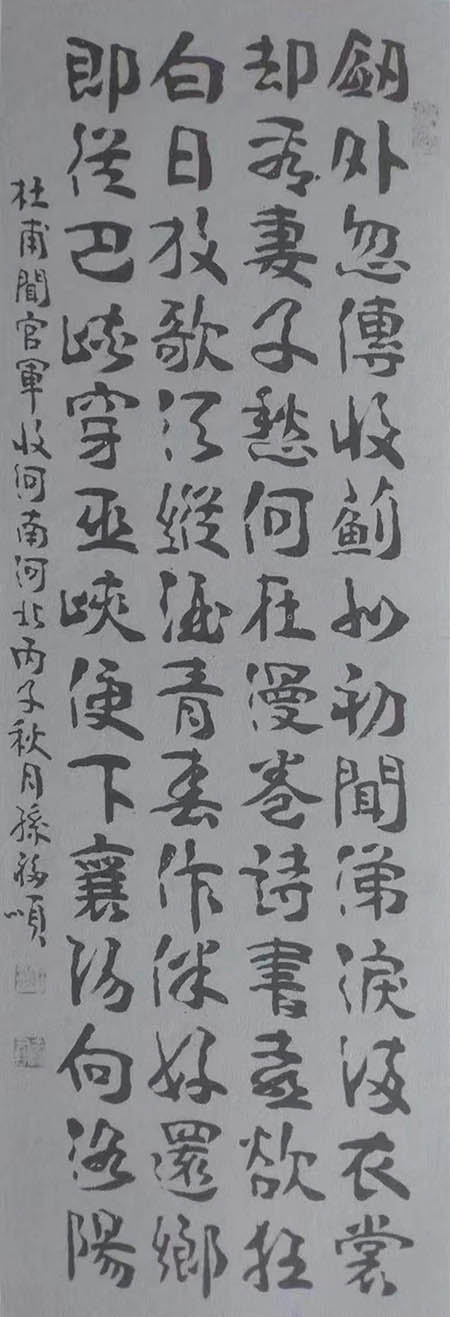 劔外忽傳收薊北初聞涕淚滿衣裳
却看妻子愁何在漫卷詩書喜欲狂
白日放歌須縱酒青春作伴好還鄉
即從巴峽穿巫峽便下襄陽向洛陽
杜甫聞官軍收河南河北丙子秋月孫福順